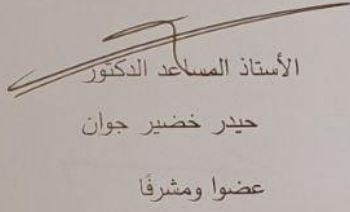 الأستاذ المساعد الدكتور
حيدر خضير جوان
عضوا ومشرفًا